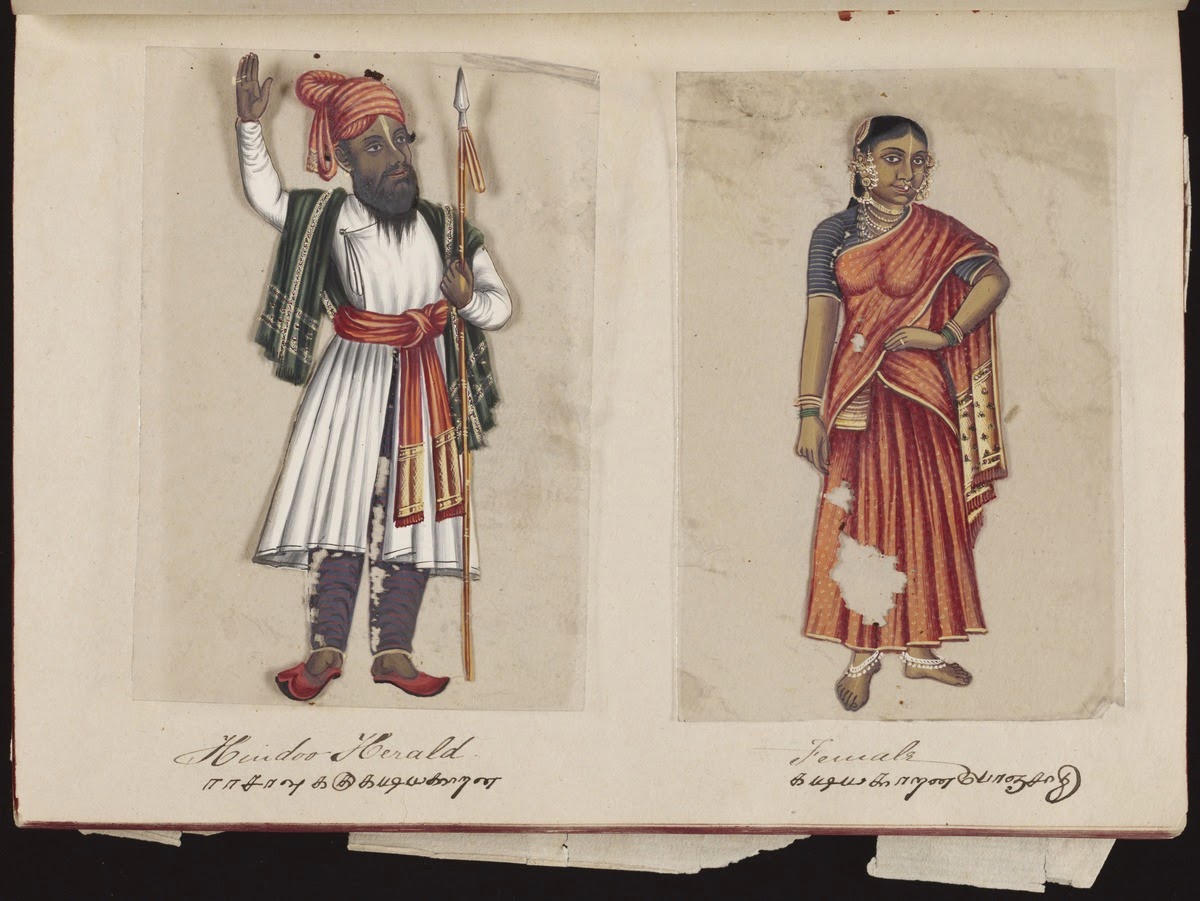 Hindoo Herald.
ராசாவுக்குகட்டியகாறன
Female
கட்டியகாறன்பொஞ்சாதி